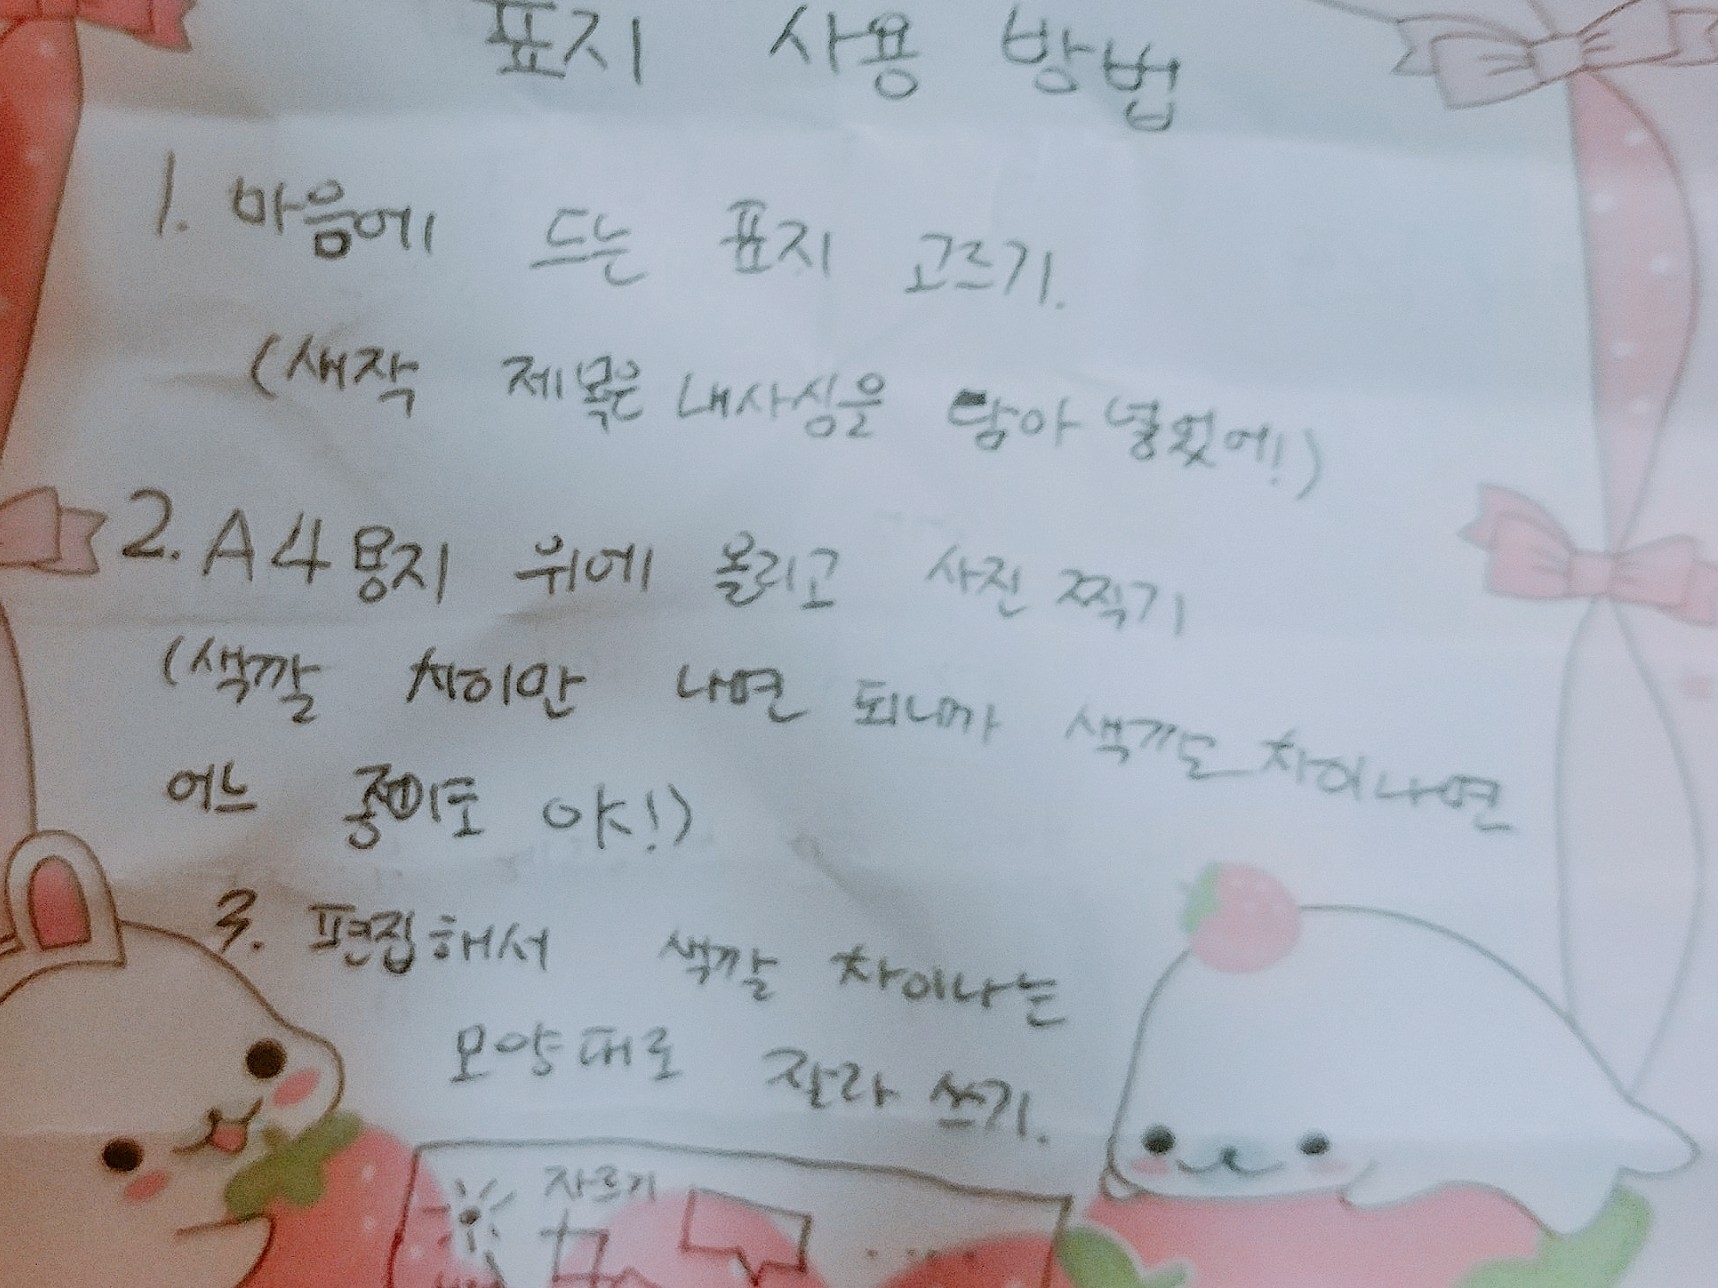 표지 사용 방법
1. 마음에 드는 표지 고르기.
(새작 제목은 내사심을 담아 넣었어!)
2. A4용지 위에 올리고 사진 찍기
(색깔 차이만 나면 되니까 색깔도 차이나면
어느 종이도 야!)
3. 편집해서 색깔 차이나는
모양대로 잘라 쓰기.
자르기